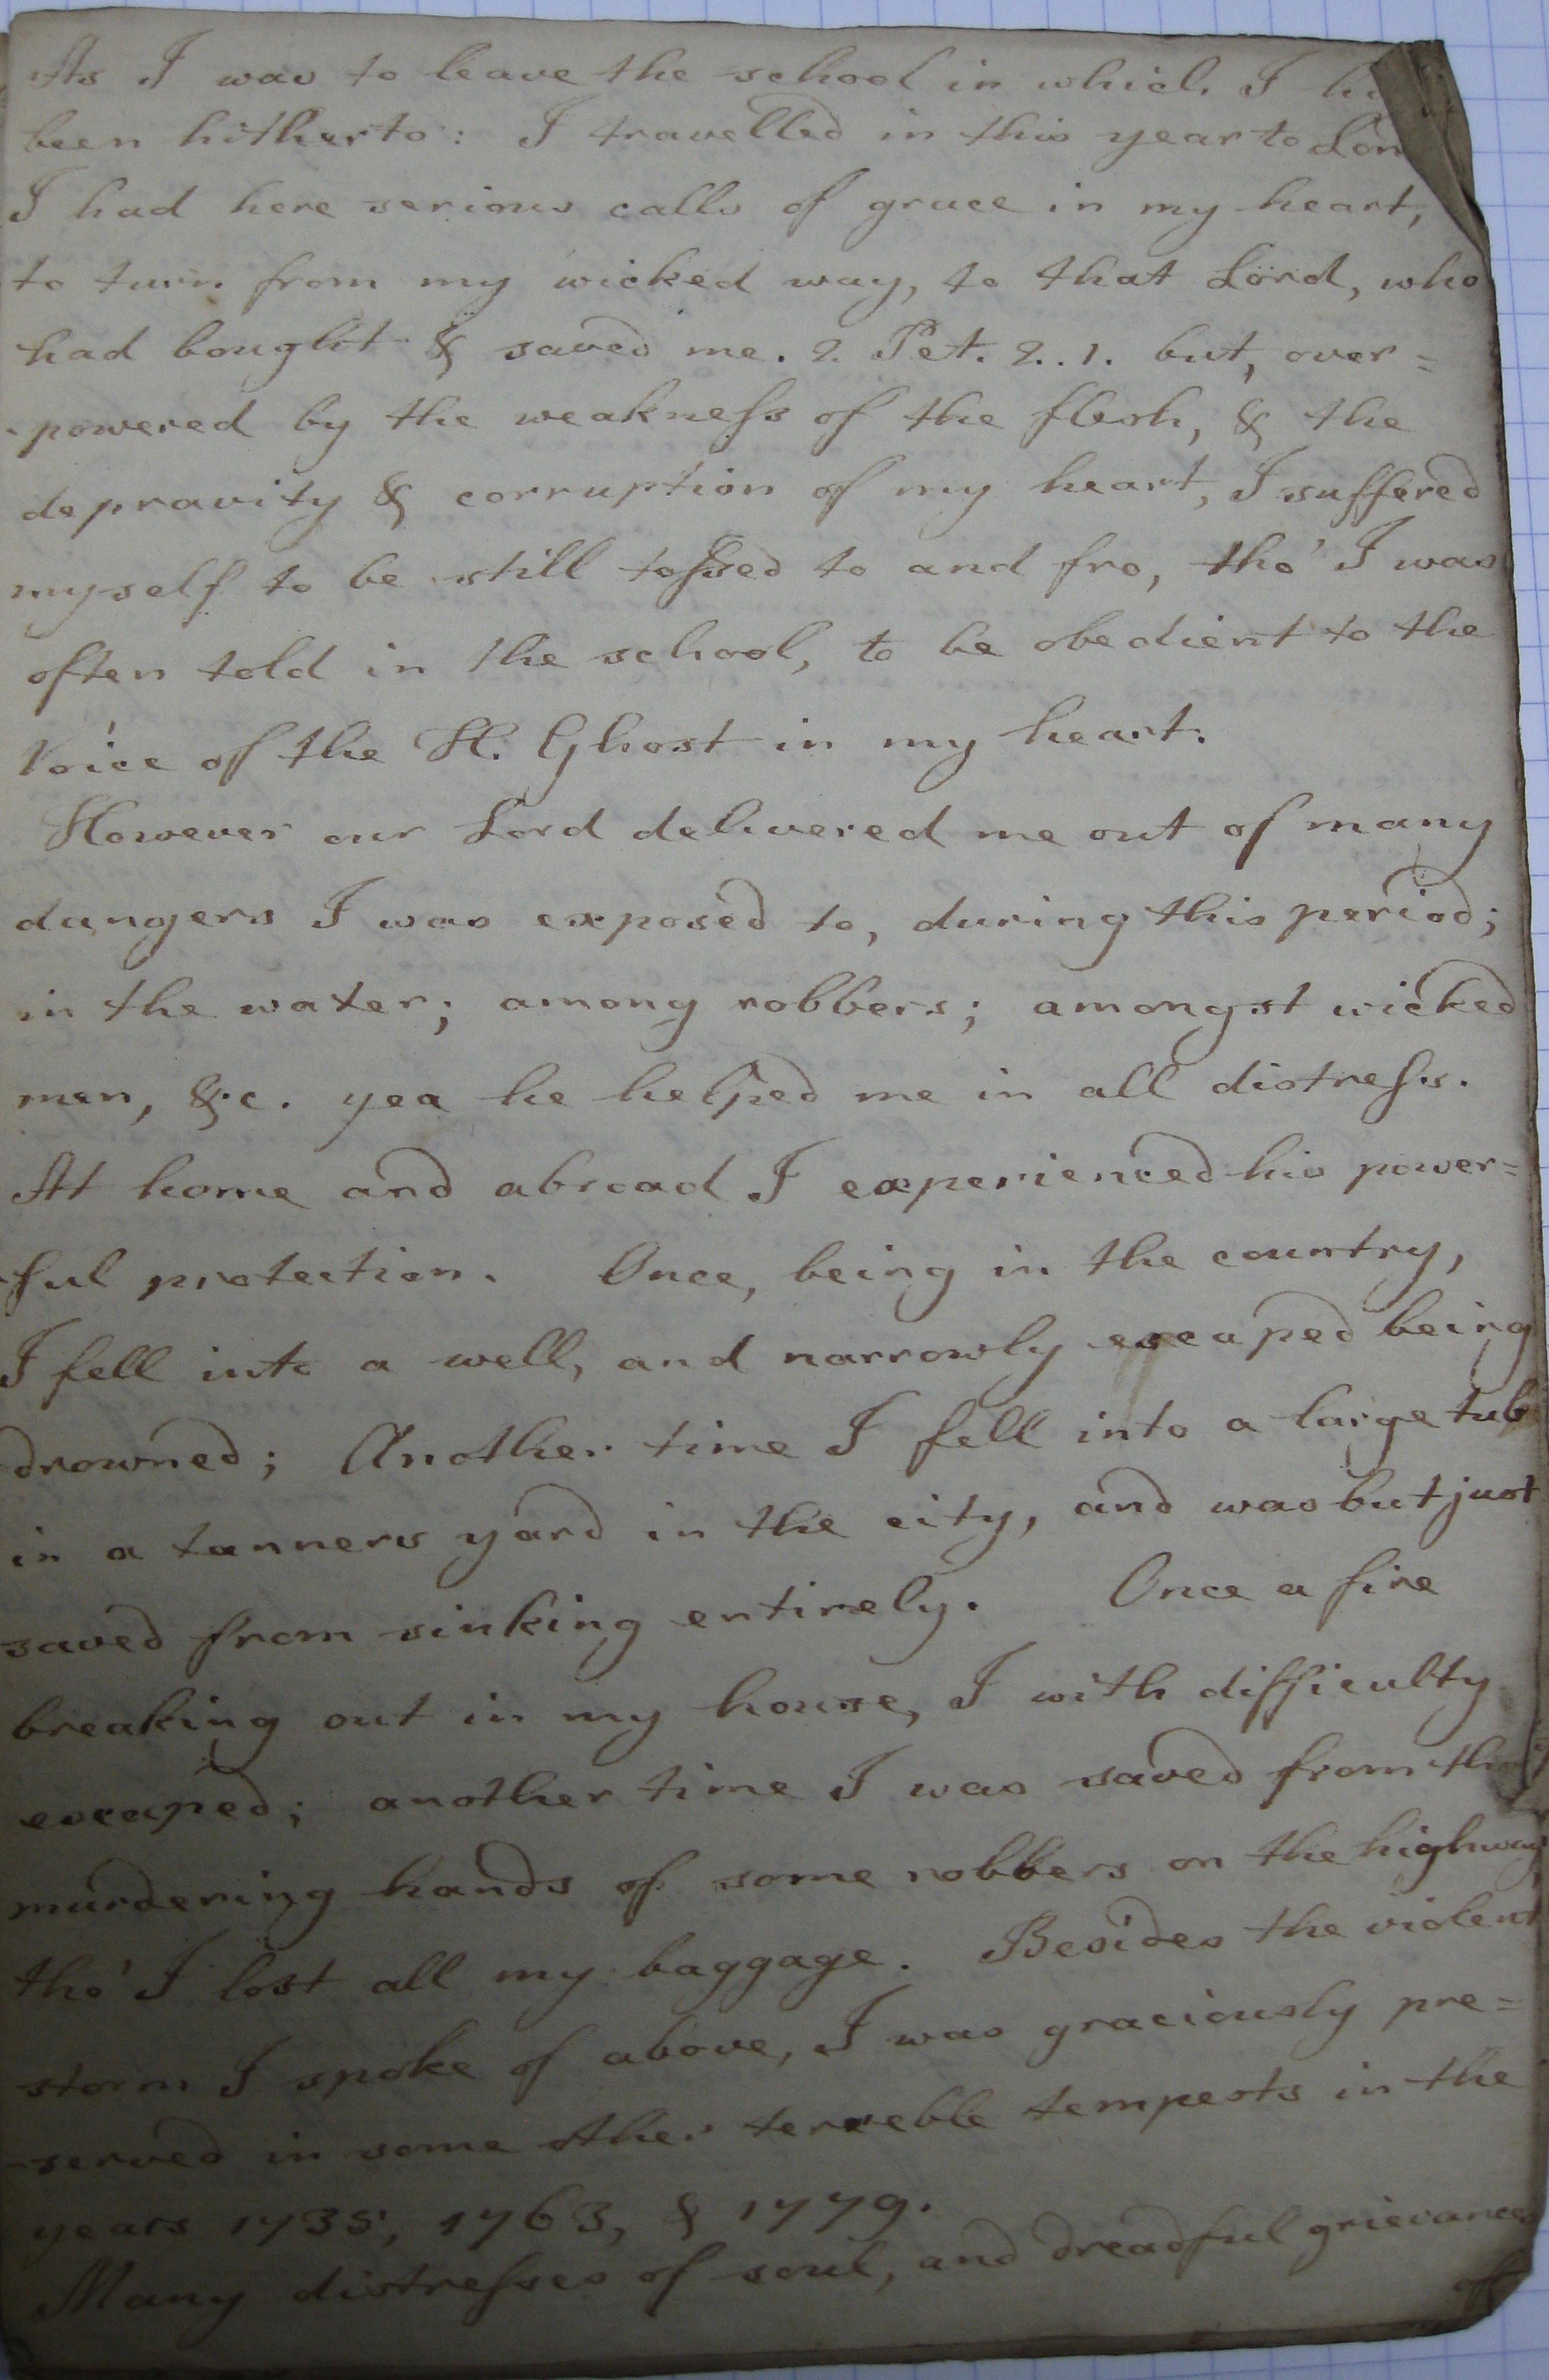 As I was to leave the school in which I
been hitherto: I travelled in this year to
I had here serious calls of grace in my heart,
to turn from my wicked way, to that Lord, who
had bought & saved me. 2. Pet. 2..1. but, over=
powered by the weakness of the flesh, & the
depravity & corruption of my heart, I suffered
myself to be still tossed to and fro, tho' I was
often told in the school, to be obedient to the
Voice of the H. Ghost in my heart.
However our Lord delivered me out of many
dangers I was exposed to, during this period;
in the water; among robbers; amongst wicked
men, &c. yea he helped me in all distress.
At home and abroad I experienced his power=
ful protection. Once, being in the country,
I fell into a well, and narrowly escaped being
drowned; Another time I fell into a large tub
in a tanners yard in the city, and was but just
saved from sinking entirely. Once a fire
breaking out in my house, I with difficulty
escaped; another time I was saved from the
murdering hands of some robbers on the highway
tho' I lost all my baggage. Besides the violent
storm I spoke of above, I was graciously pre=
served in some other terreble tempests in the
years 1735, 1763, & 1779.
Many distresses of soul, and dreadful grievances
of